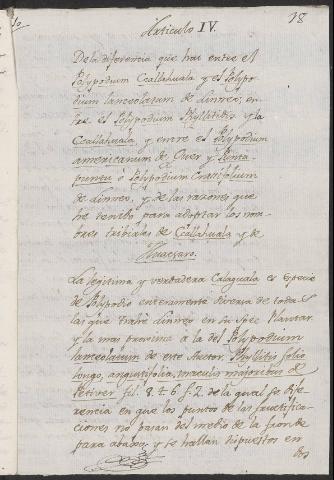 18
Articulo IV.
De la diferencia que hai entre el
Polypodium Ccallahuala y el Polypo-
dium lanceolatum de Linneo; en-
tre el Polypodium Phyllitidis y la
Ccallahuala y entre el Polypodium
americanum de Cuer y Punta-
puntu ó Polypodium Crassifolium
de Linneo, y de las razones que
he tenido para adoptar los nom-
bres tribiales de Ccallahuala y de
Huacsaro.
La legitima y verdadera Calaguala es especie
de Polypodio enteramente diversa de todas
las que trahe Linneo en su Spec. Plantar.
y la mas proxima à la del Polypodium
lanceolatum de este Autor. Phyllitis folio
longo, angustifolia, maculis majoribus de
Petiver fil. 8. t. 6. f. 2. de la qual se dife-
rencia en que los puntos de las fructifica-
ciones no pasan del medio de la fronde
para abaxo, y se hallan dispuestos en
dos